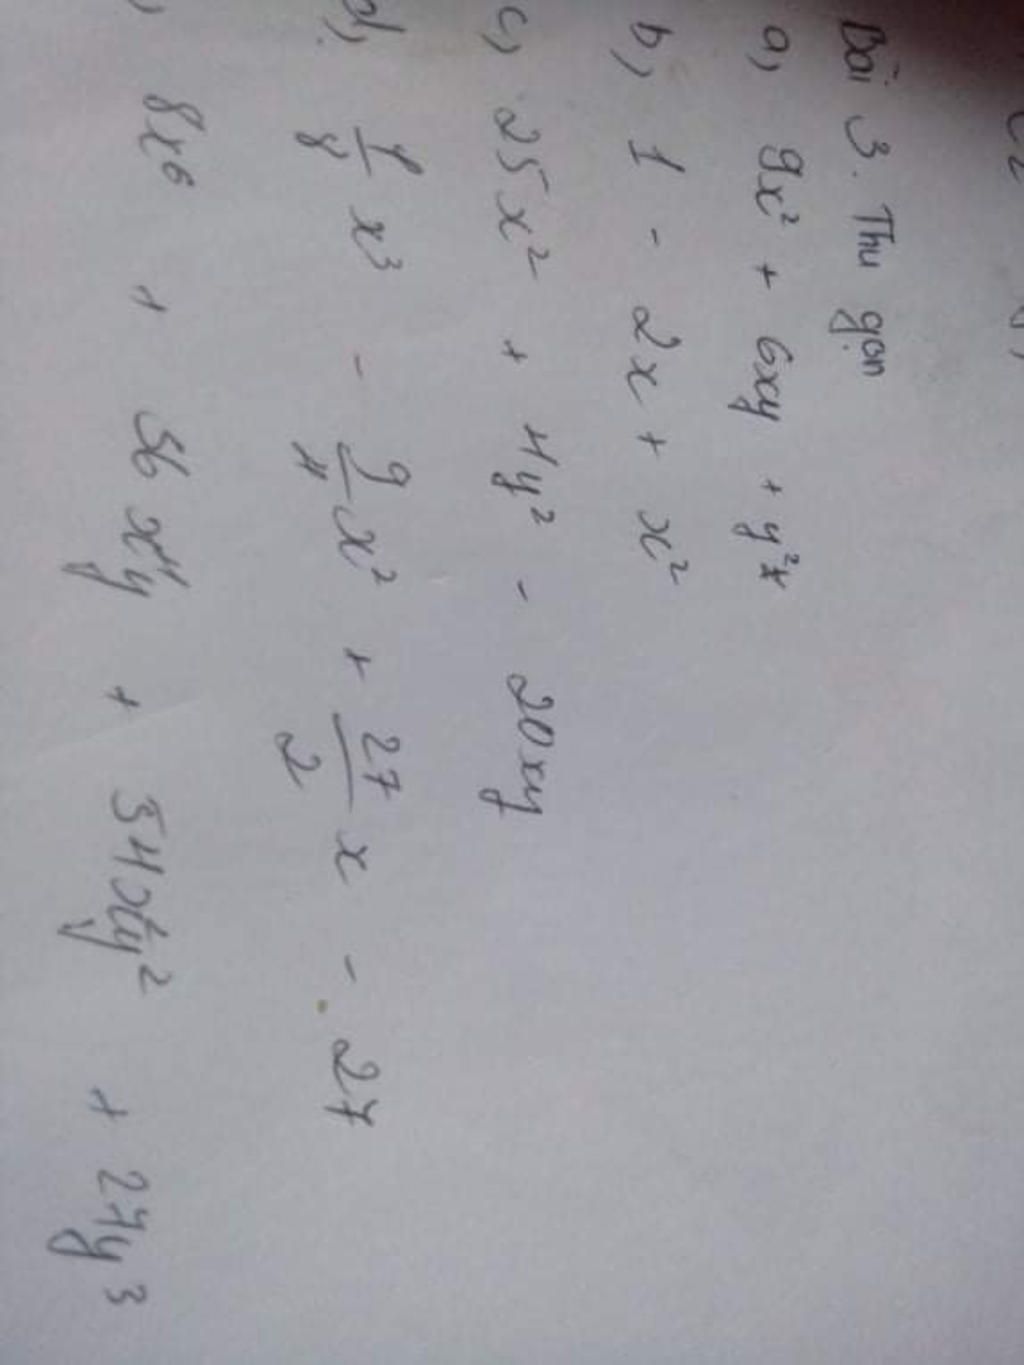 Bài 3. Thu gọn
a, 9x² + 6xy + y²
b, 1 - 2x + x²
c, 25x² + 4y² - 20xy
d, 1/8 x³ - 9/4 x² + 27/2 x - 27
8x⁶ + 36x⁴y + 54x²y² + 27y³